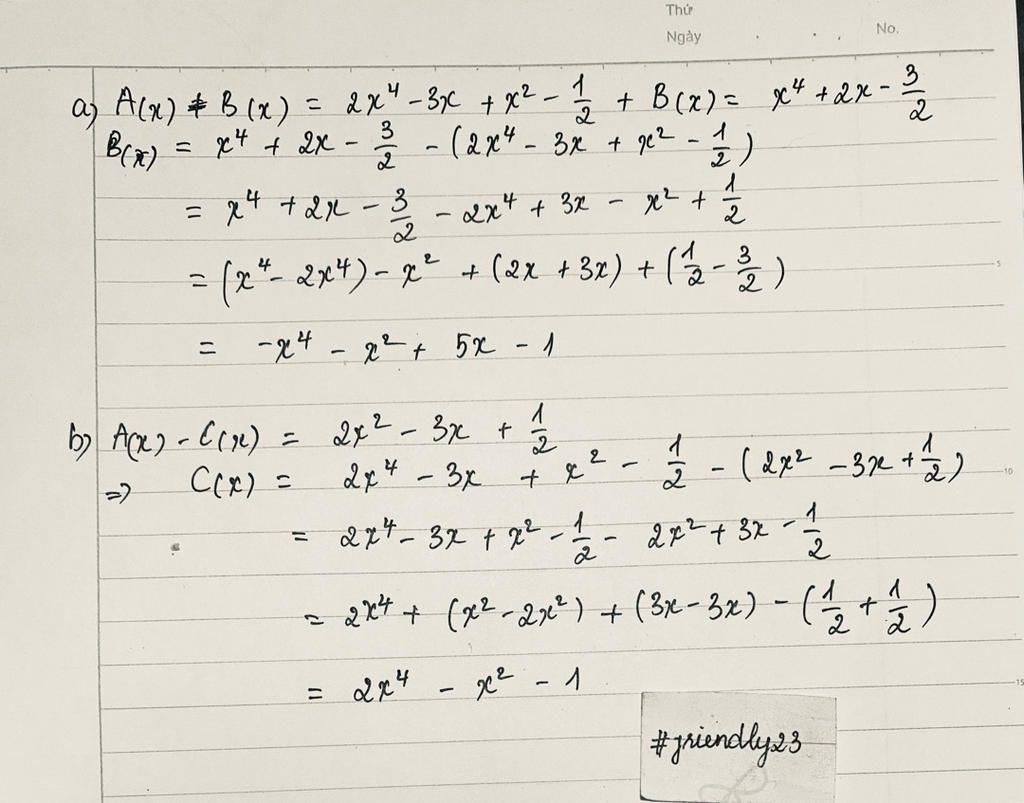 Thứ
Ngày No.
a) A(x) + B(x) = 2x⁴ - 3x + x² - 1/2 + B(x) = x⁴ + 2x - 3/2
B(x) = x⁴ + 2x - 3/2 - (2x⁴ - 3x + x² - 1/2)
= x⁴ + 2x - 3/2 - 2x⁴ + 3x - x² + 1/2
= (x⁴ - 2x⁴) - x² + (2x + 3x) + (1/2 - 3/2)
5
= -x⁴ - x² + 5x - 1
b) A(x) - C(x) = 2x² - 3x + 1/2
=> C(x) = 2x⁴ - 3x + x² - 1/2 - (2x² - 3x + 1/2)
10
= 2x⁴ - 3x + x² - 1/2 - 2x² + 3x - 1/2
= 2x⁴ + (x² - 2x²) + (3x - 3x) - (1/2 + 1/2)
= 2x⁴ - x² - 1
15
#friendly23